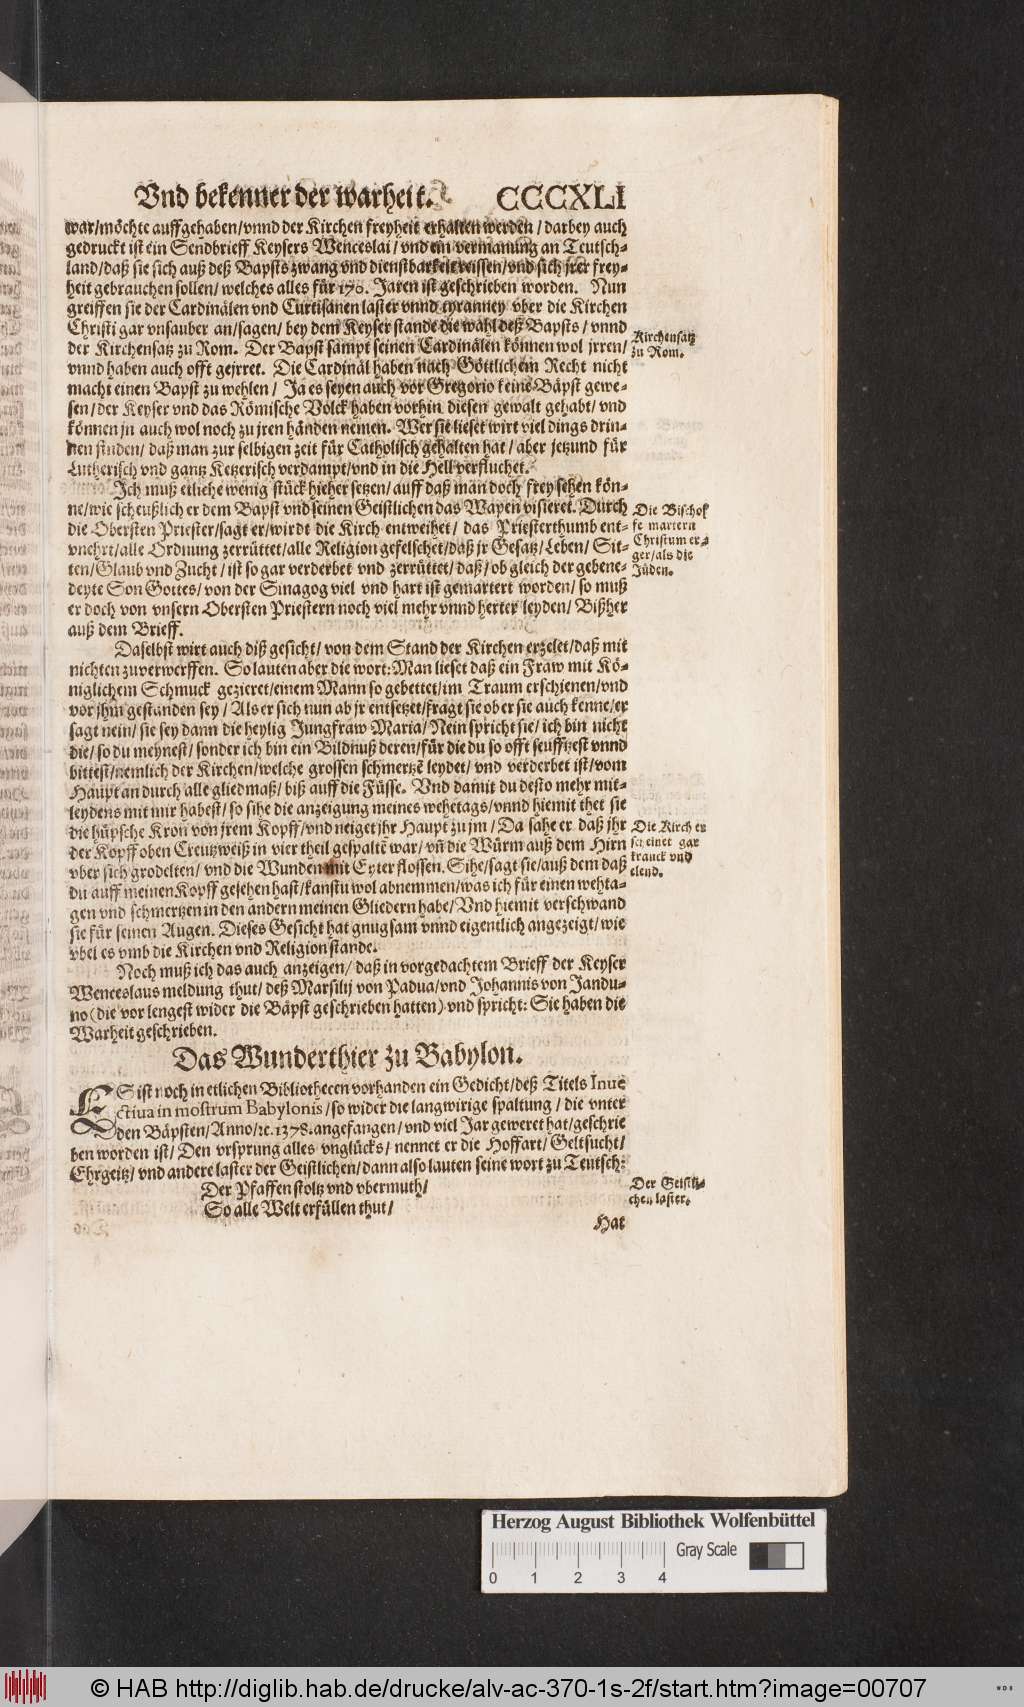 Vnd bekenner der warheit. CCCXLI
war/möchte auffgehaben/vnnd der Kirchen freyheit erhalten werden/darbey auch
gedruckt ist ein Sendbrieff Keysers Wenceslai/vnd ein vermanung an Teutsch-
land/daß sie sich auß deß Bapsts zwang vnd dienstbarkeit reissen/vnd sich jrer frey-
heit gebrauchen sollen/welches alles für 170. Jaren ist geschrieben worden. Nun
greiffen sie der Cardinälen vnd Curtisanen laster vnnd tyranney vber die Kirchen
Christi gar vnsauber an/sagen/bey dem Keyser stande die wahl deß Bapsts/vnnd
der Kirchensatz zu Rom. Der Bapst sampt seinen Cardinälen können wol jrren/
vnnd haben auch offt gejrret. Die Cardinäl haben nach Göttlichem Recht nicht
macht einen Bapst zu wehlen/Ja es seyen auch vor Gregorio keine Bäpst gewe-
sen/der Keyser vnd das Römische Volck haben vorhin diesen gewalt gehabt/vnd
können jn auch wol noch zu jren händen nemen. Wer sie lieset wirt viel dings drin-
nen finden/daß man zur selbigen zeit für Catholisch gehalten hat/aber jetzund für
Lutherisch vnd gantz Ketzerisch verdampt/vnd in die Hell verfluchet.
Kirchensatz
zu Rom.
Ich muß etliche wenig stück hieher setzen/auff daß man doch frey sehen kön-
ne/wie scheußlich er dem Bapst vnd seinen Geistlichen das Wapen visieret. Durch
die Obersten Priester/sagt er/wirdt die Kirch entweihet/das Priesterthumb ent-
vnehrt/alle Ordnung zerrüttet/alle Religion gefelschet/daß jr Gesatz/Leben/Sit-
ten/Glaub vnd Zucht/ist so gar verderbet vnd zerrüttet/daß/ob gleich der gebene-
deyte Son Gottes/von der Sinagog viel vnd hart ist gemartert worden/so muß
er doch von vnsern Obersten Priestern noch viel mehr vnnd herter leyden/Bißher
auß dem Brieff.
Die Bischof
fe martern
Christum er-
ger/als die
Jüden.
Daselbst wirt auch diß gesicht/von dem Stand der Kirchen erzelet/daß mit
nichten zuverwerffen. So lauten aber die wort: Man lieset daß ein Fraw mit Kö-
niglichem Schmuck gezieret/einem Mann so gebettet/im Traum erschienen/vnd
vor jhm gestanden sey/Als er sich nun ab jr entsetzet/fragt sie ob er sie auch kenne/er
sagt nein/sie sey dann die heylig Jungfraw Maria/Nein spricht sie/ich bin nicht
die/so du meynest/sonder ich bin ein Bildnuß deren/für die du so offt seufftzest vnnd
bittest/nemlich der Kirchen/welche grossen schmertzē leydet/vnd verderbet ist/vom
Haupt an durch alle glied maß/biß auff die Füsse. Vnd damit du desto mehr mit-
leydens mit mir habest/so sihe die anzeigung meines wehetags/vnnd hiemit thet sie
die hüpsche Kron von jrem Kopff/vnd neiget jhr Haupt zu jm/Da sahe er daß jhr
der Kopff oben Creutzweiß in vier theil gespaltē war/vn̄ die Würm auß dem Hirn
vber sich grodelten/vnd die Wunden mit Eyter flossen. Sihe/sagt sie/auß dem daß
du auff meinen Kopff gesehen hast/kanstu wol abnemmen/was ich für einen wehta-
gen vnd schmertzen in den andern meinen Gliedern habe/Vnd hiemit verschwand
sie für seinen Augen. Dieses Gesicht hat gnugsam vnnd eigentlich angezeigt/wie
vbel es vmb die Kirchen vnd Religion stande.
Die Kirch er
scheinet gar
kranck vnd
elend.
Noch muß ich das auch anzeigen/daß in vorgedachtem Brieff der Keyser
Wenceslaus meldung thut/deß Marsilij von Padua/vnd Johannis von Jandu-
no (die vor lengest wider die Bäpst geschrieben hatten) vnd spricht: Sie haben die
Warheit geschrieben.
Das Wunderthier zu Babylon.
ES ist noch in etlichen Bibliothecen vorhanden ein Gedicht/deß Titels Inue
ctiua in mostrum Babylonis/so wider die langwirige spaltung/die vnter
den Bäpsten/Anno/ꝛc. 1378. angefangen/vnd viel Jar geweret hat/geschrie
ben worden ist/Den vrsprung alles vnglücks/nennet er die Hoffart/Geltsucht/
Ehrgeitz/vnd andere laster der Geistlichen/dann also lauten seine wort zu Teutsch:
Der Pfaffen stoltz vnd vbermuth/
So alle Welt erfüllen thut/
Der Geistli-
chen laster.
Hat
Herzog August Bibliothek Wolfenbüttel
Gray Scale
0 1 2 3 4
© HAB http://diglib.hab.de/drucke/alv-ac-370-1s-2f/start.htm?image=00707
WDB